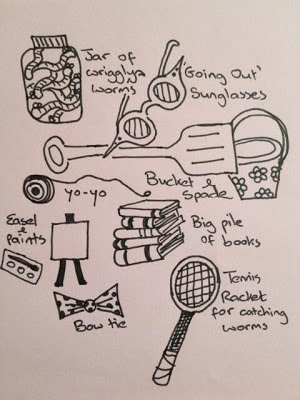 Jar of
wriggly
worms
'Going Out'
Sunglasses
Bucket &
Spade
yo-yo
Easel &
paints
Big pile
of books
Bow tie
Tennis
Racket
for catching
worms